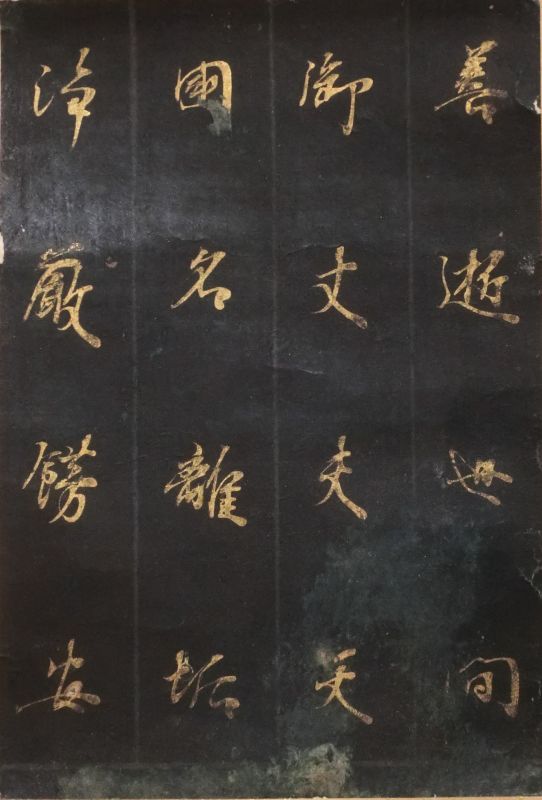 善逝世間
御丈夫天
國名離垢
淨嚴飾安